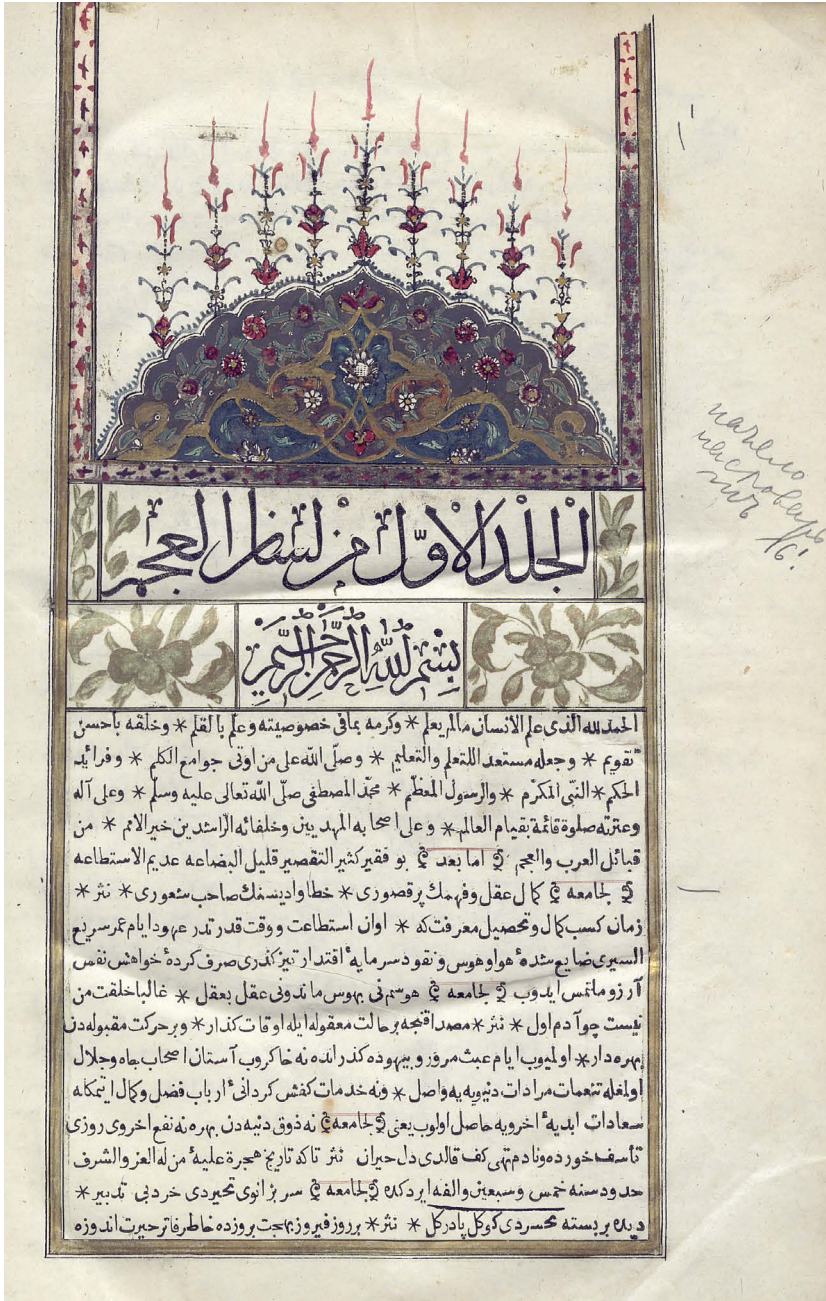 الجلد الاول من لسان العجم
بسم الله الرحمن الرحيم
الحمد لله الذى علم الانسان مالم يعلم * وكرمه بمافى خصوصيته وعلم بالقلم * وخلقه باحسن
تقويم * وجعله مستعد اللتعلم والتعليم * وصلى الله على من اوتى جوامع الكلم * وفرائد
الحكم * النبى المكرم * والرسول المعظم * محمد المصطفى صلى الله تعالى عليه وسلم * وعلى آله
وعترته صلوة قائمة بقيام العالم * وعلى اصحابه المهديين وخلفائه الراشدين خير الامم * من
قبائل العرب والعجم اما بعد بو فقير كثير التقصير قليل البضاعه عديم الاستطاعه
لجامعه كمال عقل وفهمك پر قصورى * خطا وادیسنك صاحب شعورى * نثر *
زمان كسب كمال وتحصيل معرفت كه * اوان استطاعت ووقت قدرتدر عهود ايام عمر سريع
السيرى ضايع شدۀ هوا وهوس ونقود سرمايۀ اقتدار تيز كذرى صرف كردۀ خواهش نفس
آرزو ملتمس ايدوب لجامعه هوسم نى بهوس ماندونى عقل بعقل * غالبا خلقت من
نيست چو آدم اول * نثر * مصداقنجه بر حالت معقوله ايله اوقات كذار * وبر حركت مقبوله دن
بهره دار * اولميوب ايام عبث مرور وبيهوده كذرانده نه خاكروب آستان اصحاب جاه وجلال
اولمغله تنعمات مرادات دنيويه يه واصل * ونه خدمات كفش كردانئ ارباب فضل وكمال ايتمكله
سعادات ابديۀ اخرويه حاصل اولوب يعنى لجامعه نه ذوق دنيه دن بهره نه نفع اخروى روزى
تأسف خورده ونادم تهى كف قالدى دل حيران نثر تاكه تاريخ هجرة عليۀ من له العز والشرف
حدود سنه خمس وسبعين والفه ايردكده لجامعه سر بزانوى تحيردى خردبى تدبير *
ديده بر بسته تحسردى كوكل پادركل * نثر * بر روز فيروز بهجت بروزده خاطر فاتر حيرت اندوزه
начело
16!